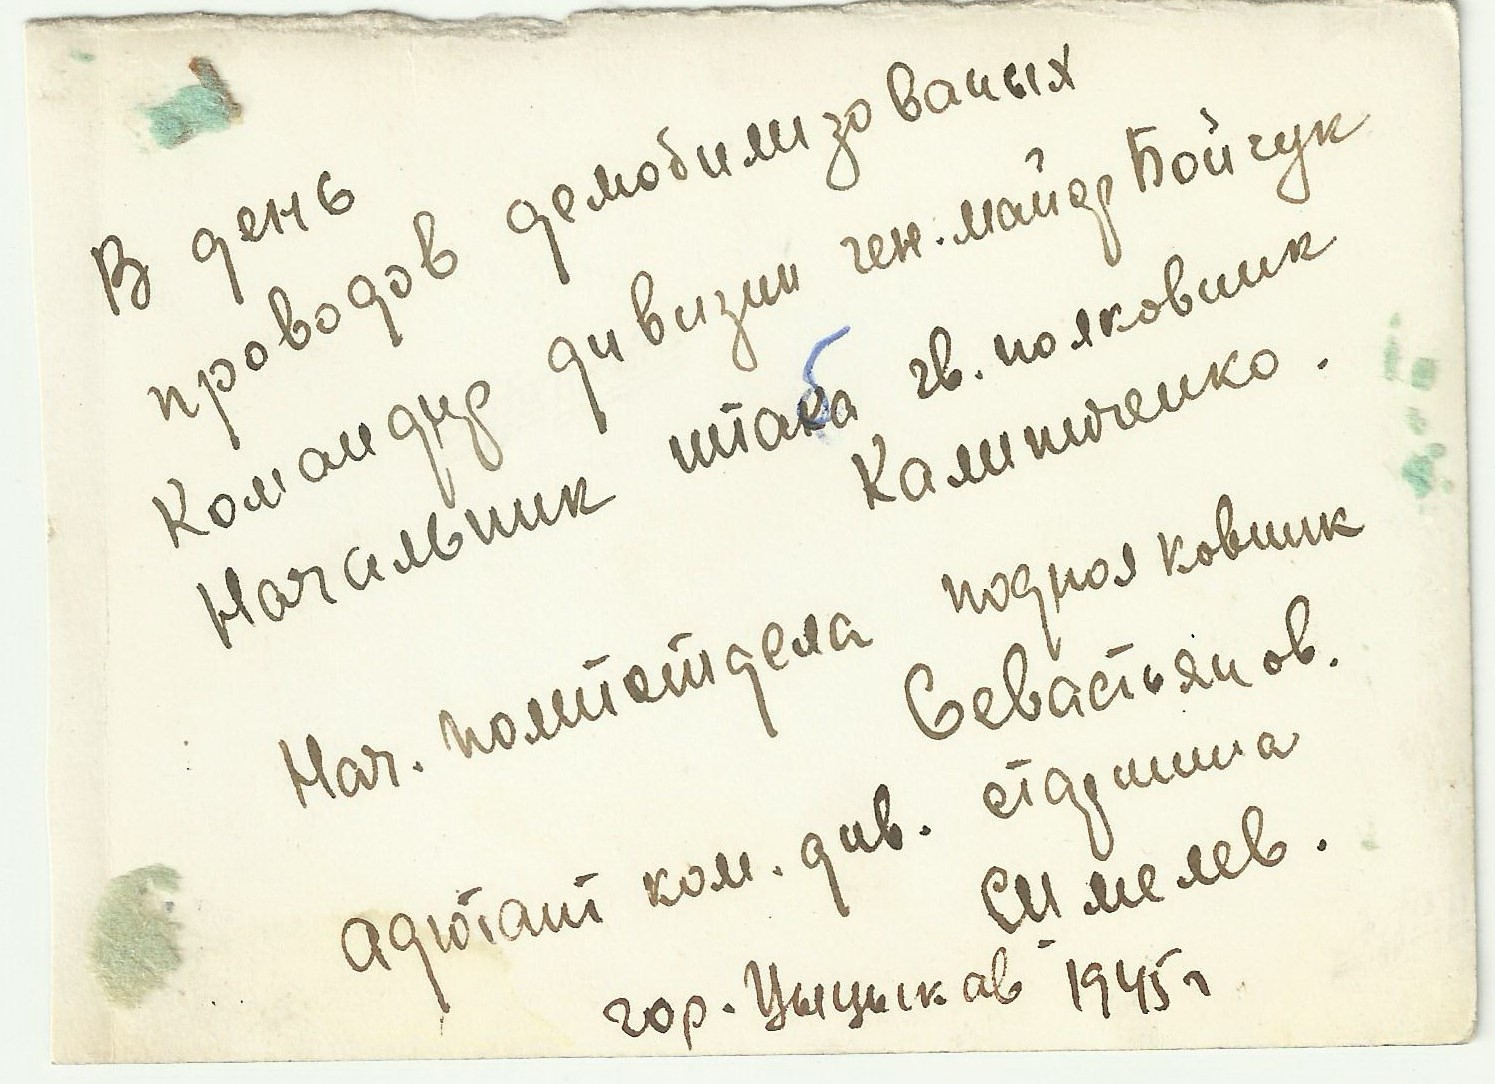 В день
проводов демобилизованых
Командир дивизии ген. майор Бойчук
Начальник штаба гв. полковник
Калиниченко.
Нач. политотдела подполковник
Севастьянов.
Адютант ком. див. старшина
Симелев.
гор. Цыцыкав 1945 г